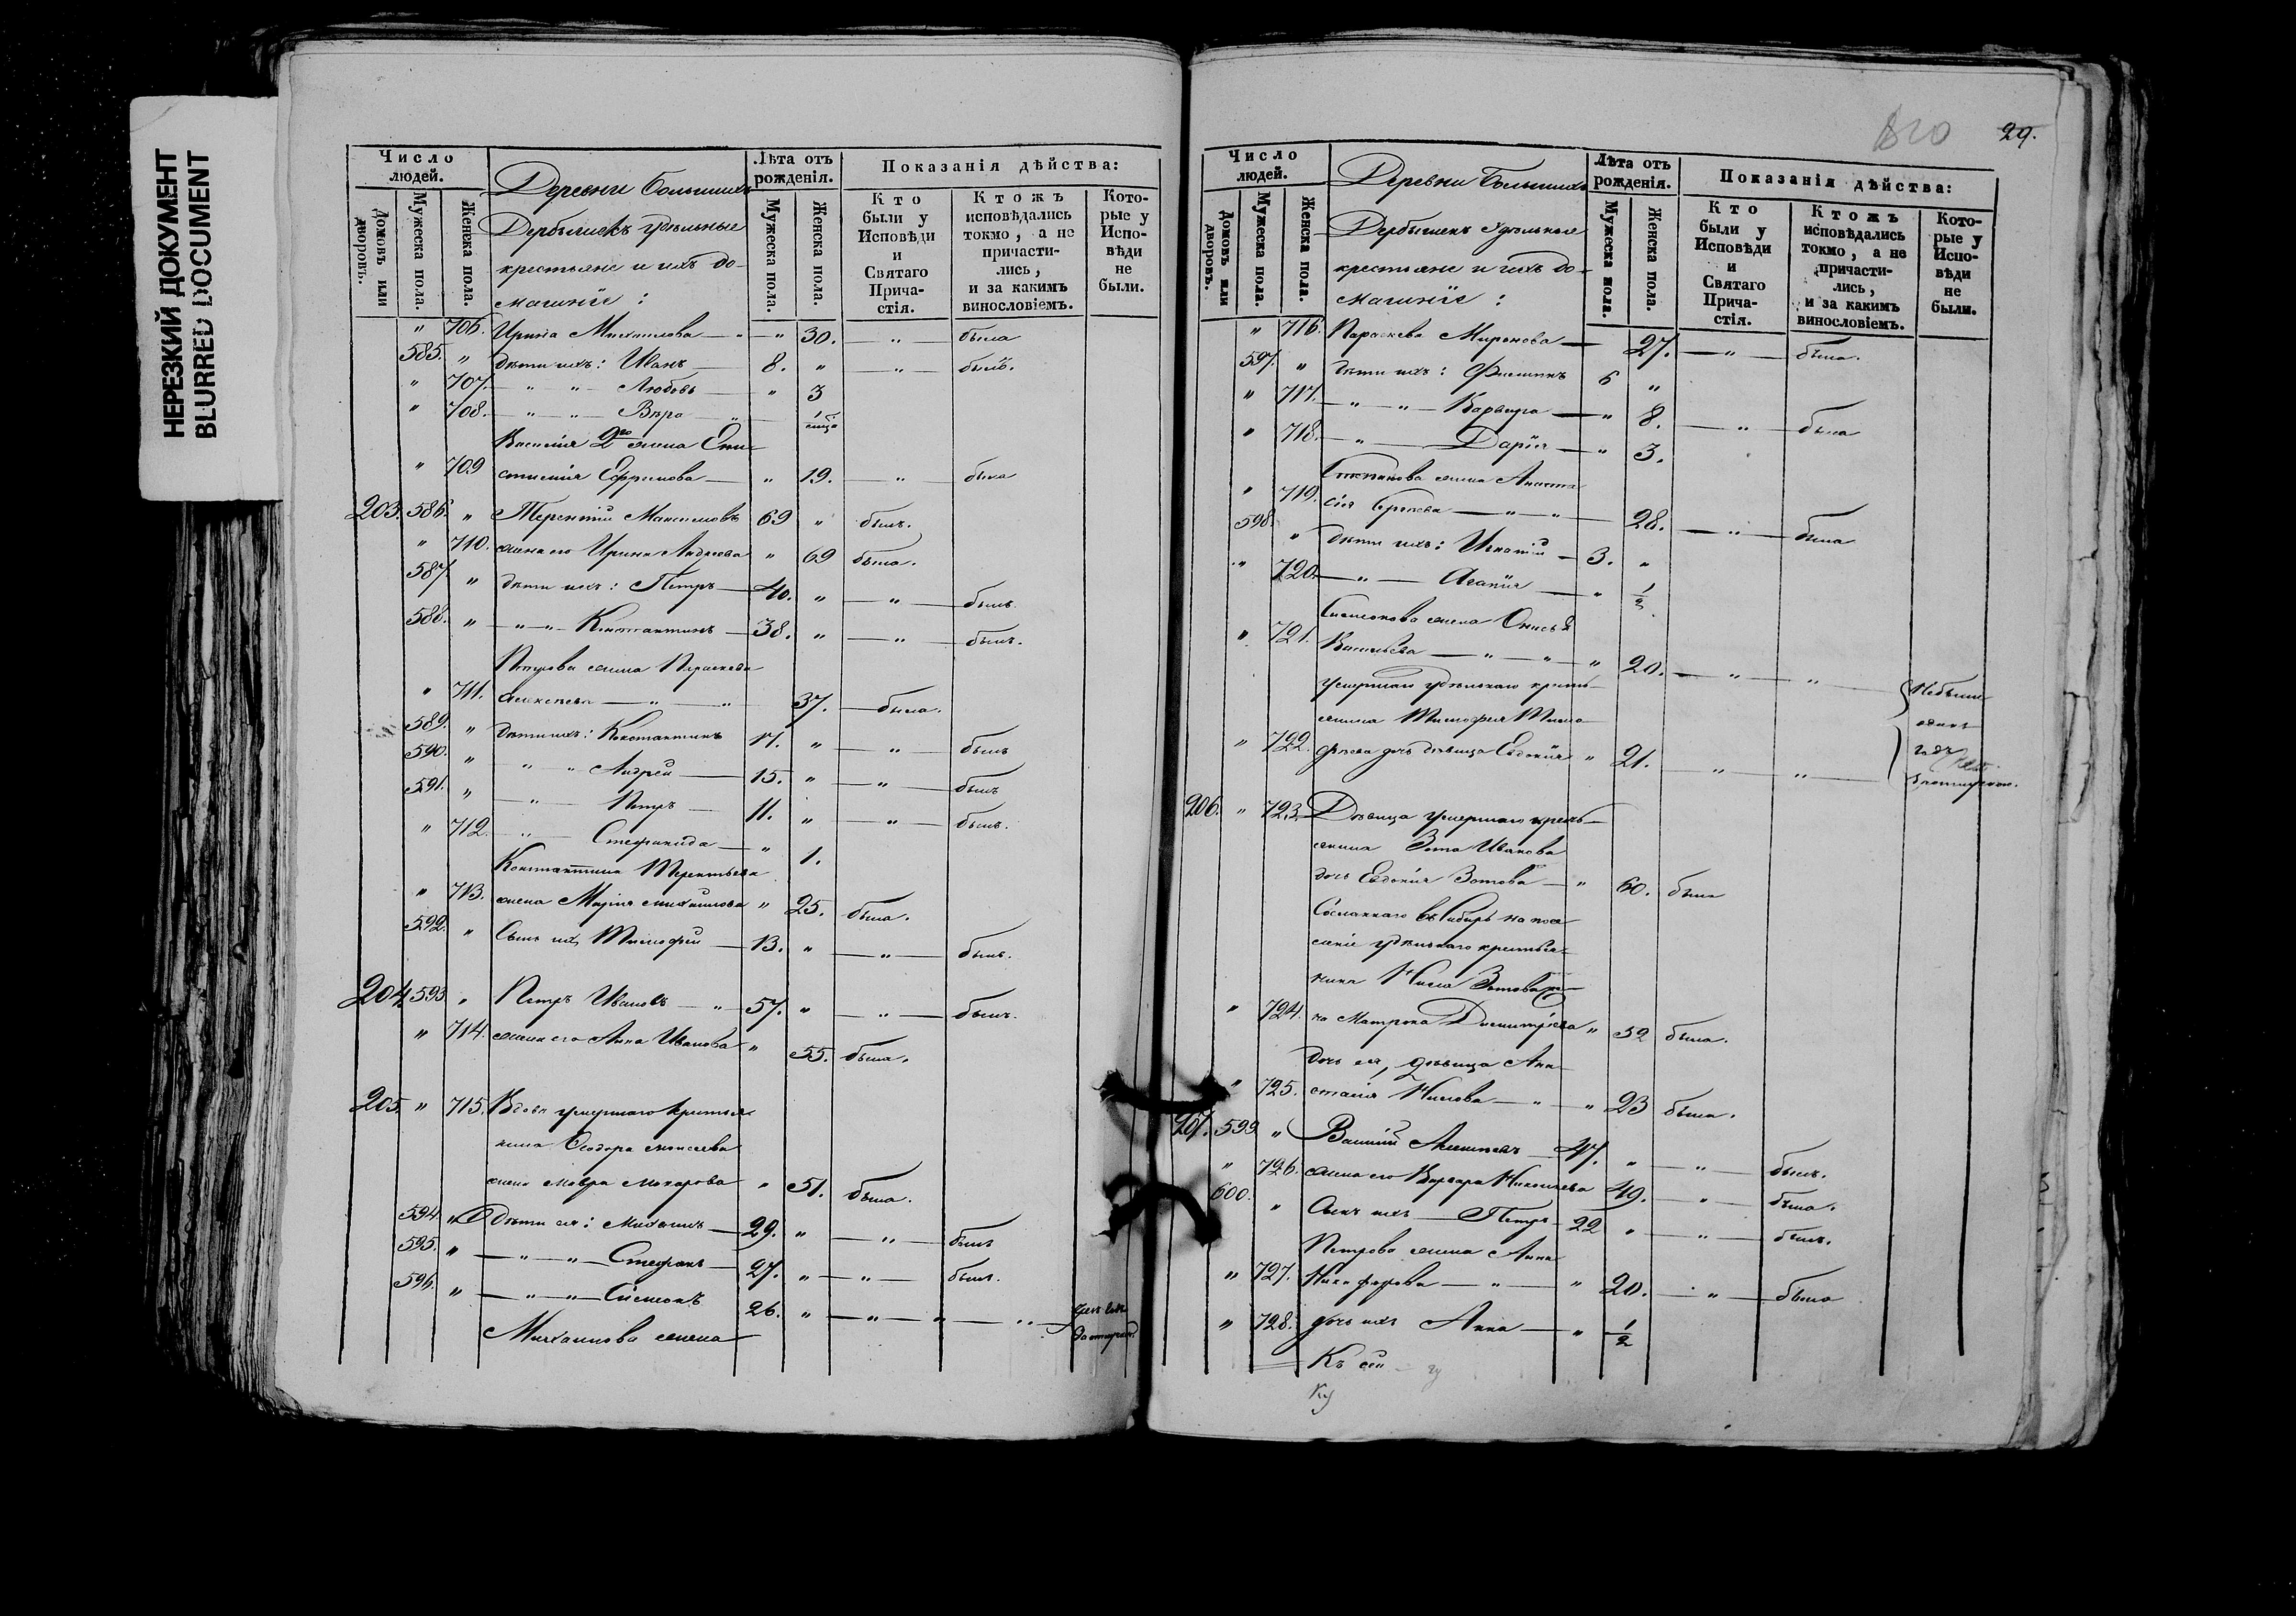 НЕРЕЗКИЙ ДОКУМЕНТ
BLURRED DOCUMENT
Число людей.
Деревни Большихъ
Дербышекъ удѣльные
крестьяне и ихъ до-
машніе:
Лѣта отъ рожденія.
Показанія дѣйства:
Домовъ или дворовъ.
Мужеска пола.
Женска пола.
Мужеска пола.
Женска пола.
Кто были у Исповѣди и Святаго Прича-стія.
Ктожъ исповѣдались токмо, а не причасти-лись, и за какимъ винословіемъ.
Кото-рые у Испо-вѣди не были.
" 706. Ирина Михайлова " 30. " была
585. " дѣти ихъ: Иванъ 8. " " былъ.
" 707. " " Любовь " 3
" 708. " " Вѣра "
Василія 2го жена
" 709 Ефремова " 19. " была
203. 586. " Терентій Максимовъ 69 " былъ.
" 710. жена его Ирина Андреева " 69 была.
587 " дѣти ихъ: Петръ 40. " " былъ.
588. " " " Константинъ 38. " " былъ.
Петрова жена Параскева
" 711. Алексѣева " " 37. была.
589. " дѣти ихъ: Константинъ 17. " " былъ
590. " " " Андрей 15. " " былъ
591. " " Петръ 11. " " былъ.
" 712. " Стефанида " 1.
Константина Терентьева
" 713. жена Марія Михайлова " 25. была.
592. " Сынъ ихъ Тимофей 13. " " былъ.
204 593 " Петръ Ивановъ " 57. " " былъ.
" 714. жена его Анна Иванова " 55. была.
205. " 715. Вдова умершаго крестья
нина Ѳеодора Моисеева
жена Мавра Макарова " 51. была.
594. " Дѣти ея: Михаилъ 29. " " былъ
595. " " " Стефанъ 27. " " былъ.
596. " " " Симеонъ 26. " " " "
Михаилова жена
29.
Число людей.
Деревни Большихъ
Дербышекъ Удѣльные
крестьяне и ихъ до-
машніе:
Лѣта отъ рожденія.
Показанія дѣйства:
Домовъ или дворовъ.
Мужеска пола.
Женска пола.
Мужеска пола.
Женска пола.
Кто были у Исповѣди и Святаго Прича-стія.
Ктожъ исповѣдались токмо, а не причасти-лись, и за какимъ винословіемъ.
Кото-рые у Испо-вѣди не были.
" 716. Параскева Миронова 27. " была.
597. " дѣти ихъ: Филиппъ 6 "
" 717. " " Варвара " 8. " была
" 718. " Дарія " 3.
Степанова жена Анаста
" 719. сія Сергѣева " " 28. " была
598. " дѣти ихъ: Игнатій 3. "
" 720. " Агапія " 1/2
Симеонова жена Онисья
" 721. Васильева " " " 20. " " Небыли
умершаго удѣльнаго кресть-
янина Тимофея Тимо
" 722. фѣева дочь дѣвица Евдокія " 21. " "
206. " 723. Дѣвица умершаго кресть-
янина Зота Иванова
дочь Евдокія Зотова " 60. была
Сосланнаго въ Сибирь на посе
леніе удѣльнаго крестья-
нина Нила Зотова же-
" 724. на Матрона Димитріева " 52 была.
дочь ея, дѣвица Ана-
" 725. стасія Нилова " " 23 была.
207. 599 " Василій Алексѣевъ 47. " " былъ.
" 726. жена его Варвара Николаева 49. " была.
600. " Сынъ ихъ Петръ 22 " " былъ.
Петрова жена Анна
" 727. Никифорова " " 20. " была
" 728. дочь ихъ Анна " 1/2
Къ сей